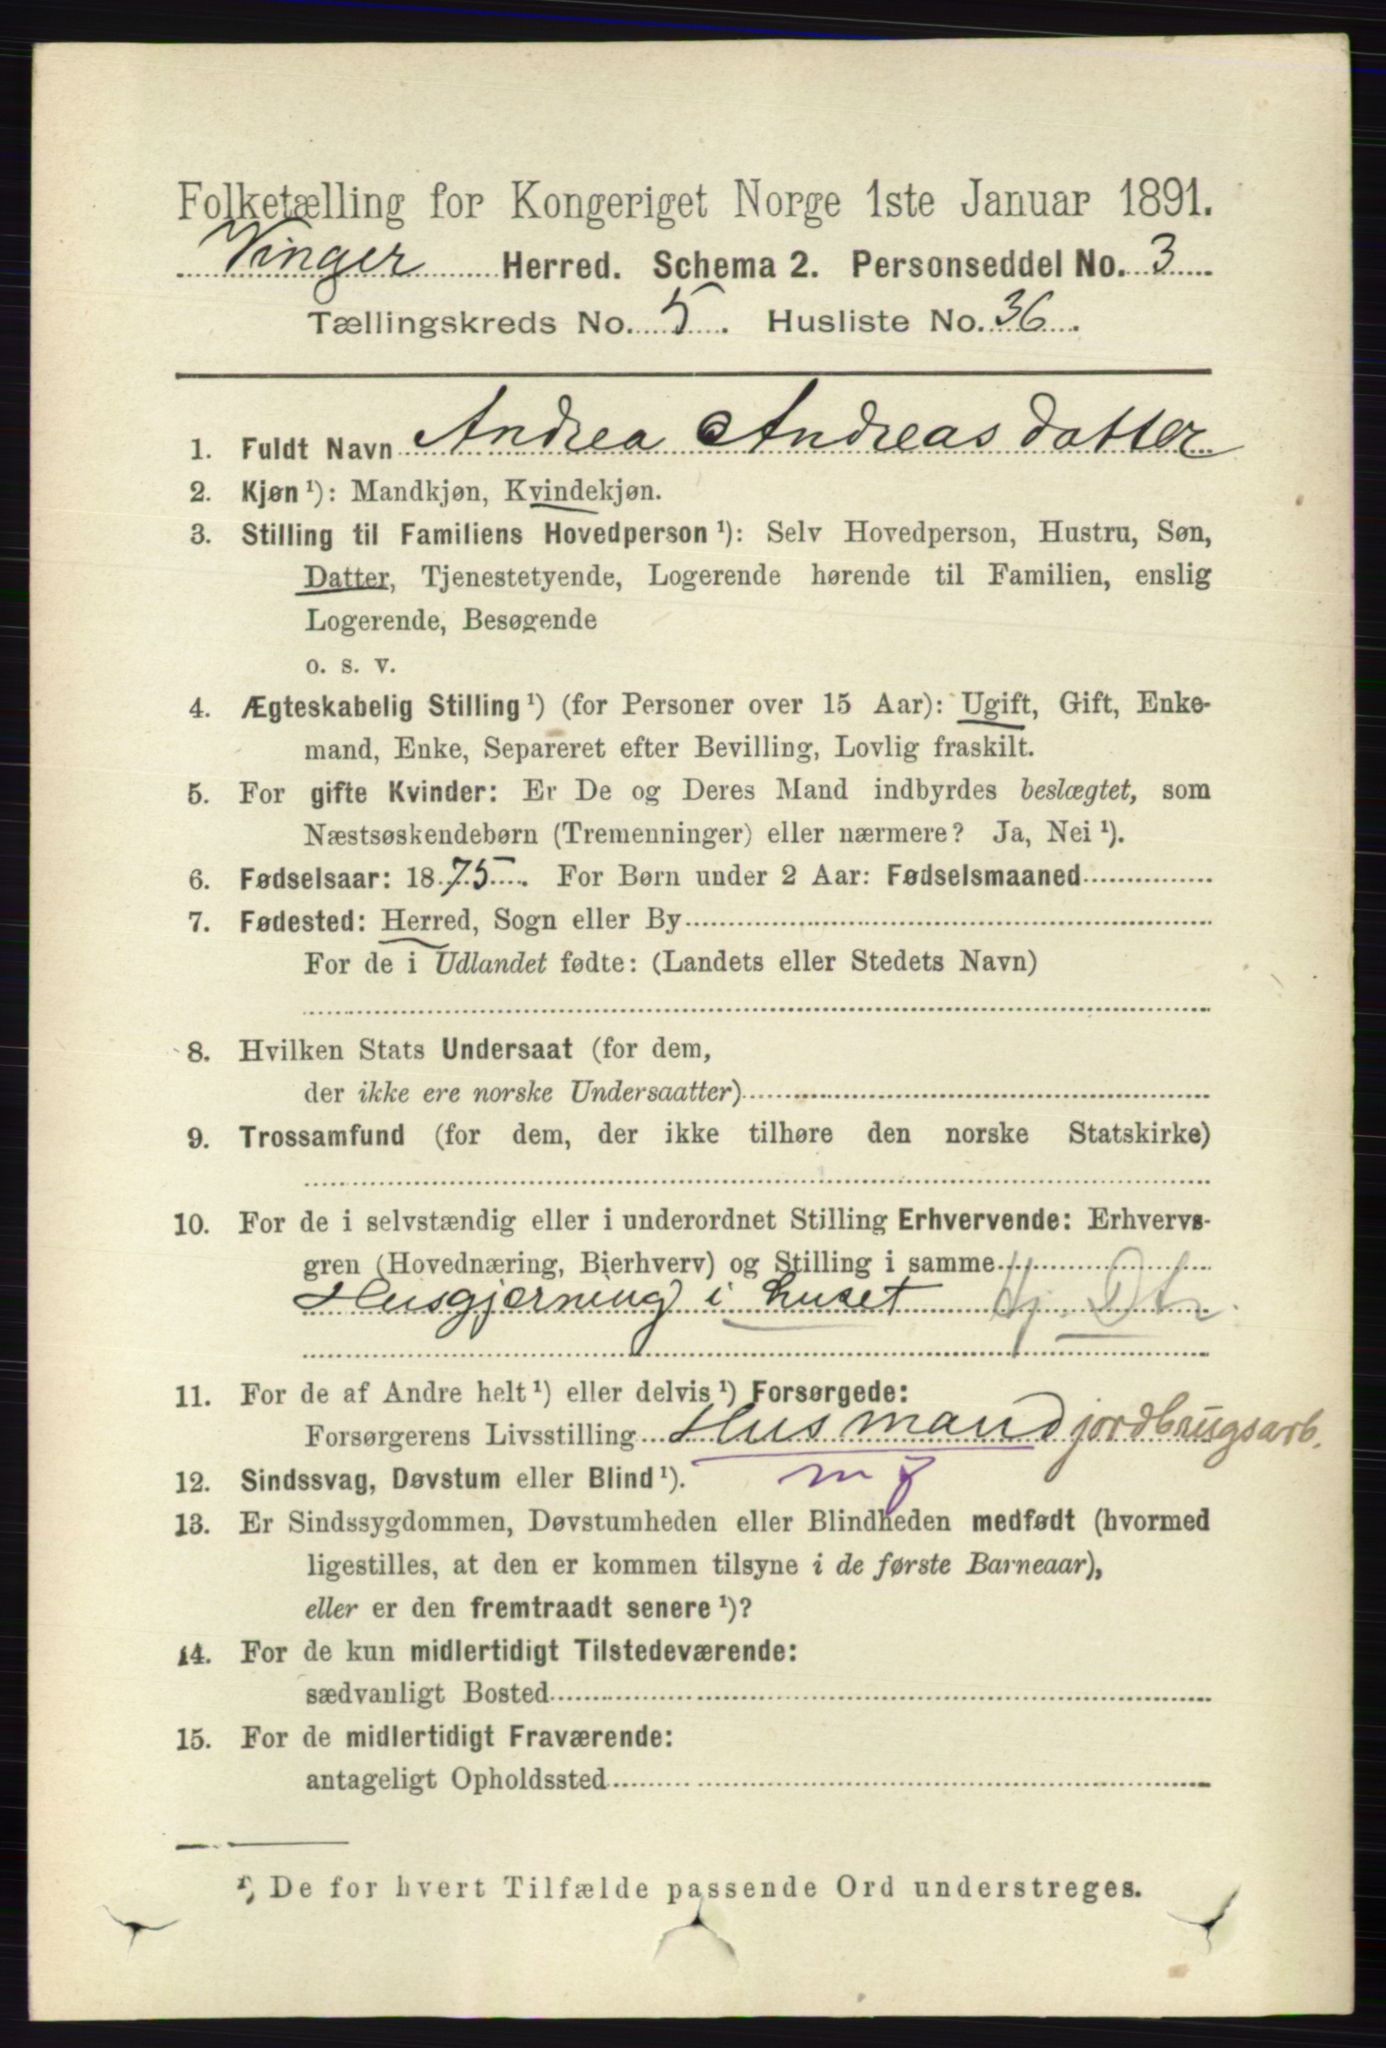 Folketælling for Kongeriget Norge 1ste Januar 1891.
Vinger Herred. Schema 2. Personseddel No. 3
Tællingskreds No. 5. Husliste No. 36.
1. Fuldt Navn Andrea Andreasdatter
2. Kjøn ¹): Mandkjøn, Kvindekjøn.
3. Stilling til Familiens Hovedperson ¹): Selv Hovedperson, Hustru, Søn,
Datter, Tjenestetyende, Logerende hørende til Familien, enslig
Logerende, Besøgende
o. s. v.
4. Ægteskabelig Stilling ¹) (for Personer over 15 Aar): Ugift, Gift, Enke-
mand, Enke, Separeret efter Bevilling, Lovlig fraskilt.
5. For gifte Kvinder: Er De og Deres Mand indbyrdes beslægtet, som
Næstsøskendebørn (Tremenninger) eller nærmere? Ja, Nei ¹).
6. Fødselsaar: 1875. For Børn under 2 Aar: Fødselsmaaned
7. Fødested: Herred, Sogn eller By
For de i Udlandet fødte: (Landets eller Stedets Navn)
8. Hvilken Stats Undersaat (for dem,
der ikke ere norske Undersaatter)
9. Trossamfund (for dem, der ikke tilhøre den norske Statskirke)
10. For de i selvstændig eller i underordnet Stilling Erhvervende: Erhvervs-
gren (Hovednæring, Bierhverv) og Stilling i samme
Husgjerning i huset Hj. Dtr.
11. For de af Andre helt ¹) eller delvis ¹) Forsørgede:
Forsørgerens Livsstilling Husmand jordbrugsarb.
12. Sindssvag, Døvstum eller Blind ¹). m j
13. Er Sindssygdommen, Døvstumheden eller Blindheden medfødt (hvormed
ligestilles, at den er kommen tilsyne i de første Barneaar),
eller er den fremtraadt senere ¹)?
14. For de kun midlertidigt Tilstedeværende:
sædvanligt Bosted
15. For de midlertidigt Fraværende:
antageligt Opholdssted
¹) De for hvert Tilfælde passende Ord understreges.